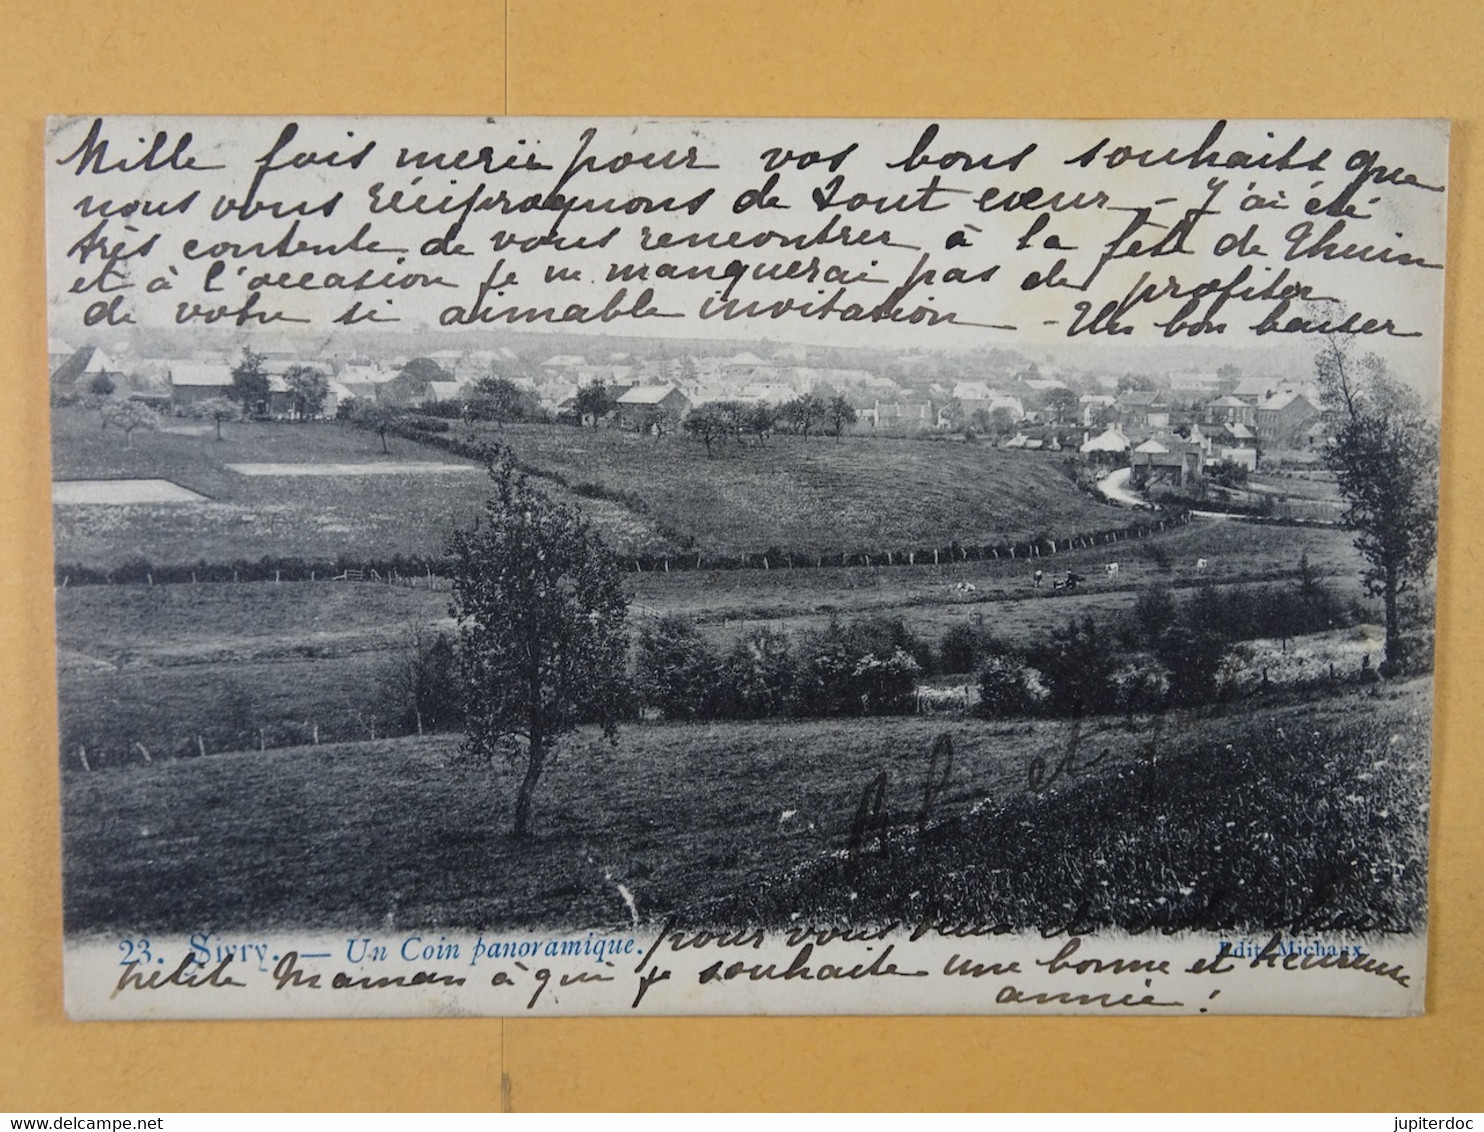 Mille fois merci pour vos bons souhaits que
nous vous réciproquons de tout cœur - J'ai été
très contente de vous rencontrer à la fête de Thuin
et à l'occasion je ne manquerai pas de profiter
de votre si aimable invitation - Un bon baiser
et
pour vous deux et votre chère
23. Sivry. — Un Coin panoramique.
Edit. Michaux
petite Maman à qui je souhaite une bonne et heureuse
année !
jupiterdoc